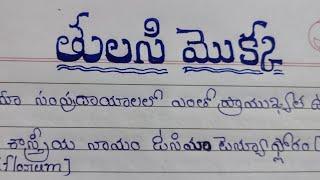 తులసి మొక్క
మా సంప్రదాయాలలో ఎంతో ప్రాముఖ్యత
శాస్త్రీయ నామం ఓసిమా టెన్యూఫ్లోరం [
iflorum]